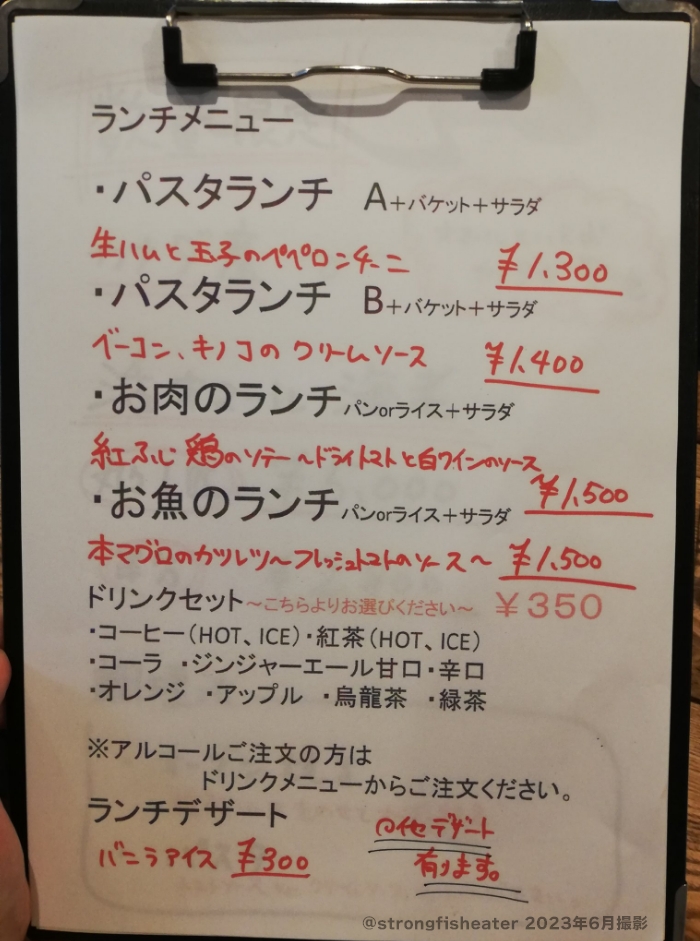 ランチメニュー
・パスタランチ A+バケット+サラダ
生ハムと玉子のペペロンチーニ ¥1,300
・パスタランチ B+バケット+サラダ
ベーコン、キノコの クリームソース ¥1,400
・お肉のランチ パンorライス+サラダ
紅ふじ鶏のソテー～ドライトマトと白ワインのソース
¥1,500
・お魚のランチ パンorライス+サラダ
本マグロのカツレツ～フレッシュトマトのソース～ ¥1,500
ドリンクセット～こちらよりお選びください～ ¥350
・コーヒー(HOT、ICE)・紅茶(HOT、ICE)
・コーラ ・ジンジャーエール甘口・辛口
・オレンジ ・アップル ・烏龍茶 ・緑茶
※アルコールご注文の方は
ドリンクメニューからご注文ください。
ランチデザート
バニラアイス ¥300
他デザート
有ります。
@strongfisheater 2023年6月撮影